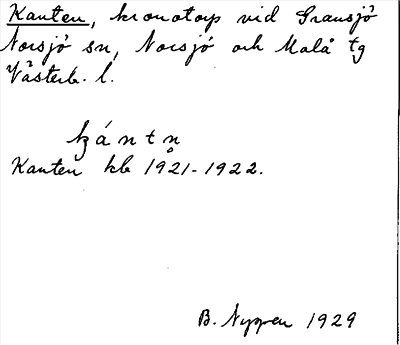 Kanten, kronotorp vid Gransjö
Norsjö sn, Norsjö och Malå tg
Västerb. l.
kántn̥
Kanten kb 1921-1922.
B. Nyppen 1929